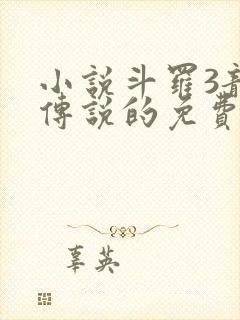 小說斗羅3龍
傳說的免費
辜英